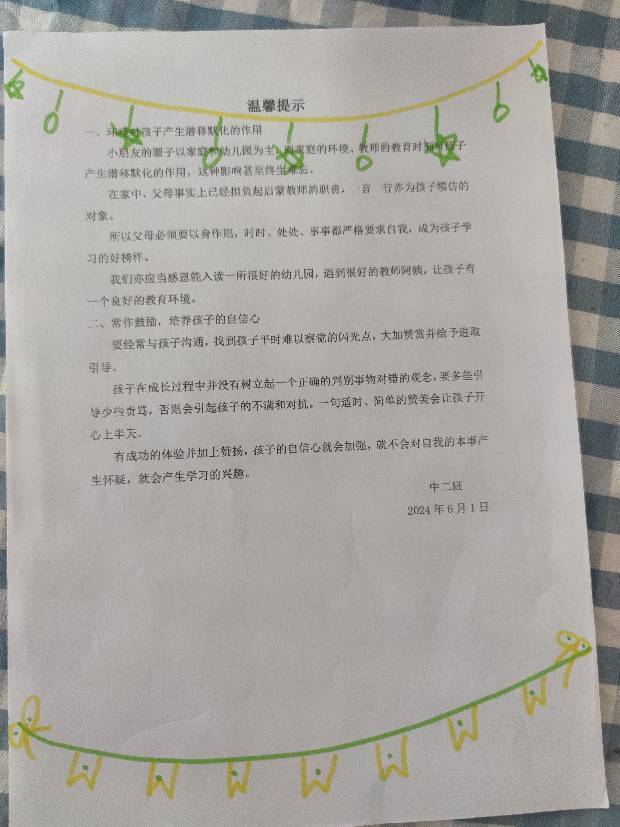 温馨提示
一、环境对孩子产生潜移默化的作用
小朋友的圈子以家庭和幼儿园为主，而家庭的环境、教师的教育时刻对孩子
产生潜移默化的作用，这种影响甚至终生难忘。
在家中、父母事实上已经担负起启蒙教师的职责，一言一行亦为孩子模仿的
对象。
所以父母必须要以身作则，时时、处处、事事都严格要求自我，成为孩子学
习的好榜样。
我们亦应当感恩能入读一所很好的幼儿园，遇到很好的教师阿姨，让孩子有
一个良好的教育环境。
二、常作鼓励，培养孩子的自信心
要经常与孩子沟通，找到孩子平时难以察觉的闪光点，大加赞赏并给予进取
引导。
孩子在成长过程中并没有树立起一个正确的判别事物对错的观念，要多些引
导少些责骂，否则会引起孩子的不满和对抗。一句适时、简单的赞美会让孩子开
心上半天。
有成功的体验并加上赞扬，孩子的自信心就会加强，就不会对自我的本事产
生怀疑，就会产生学习的兴趣。
中二班
2024年6月1日